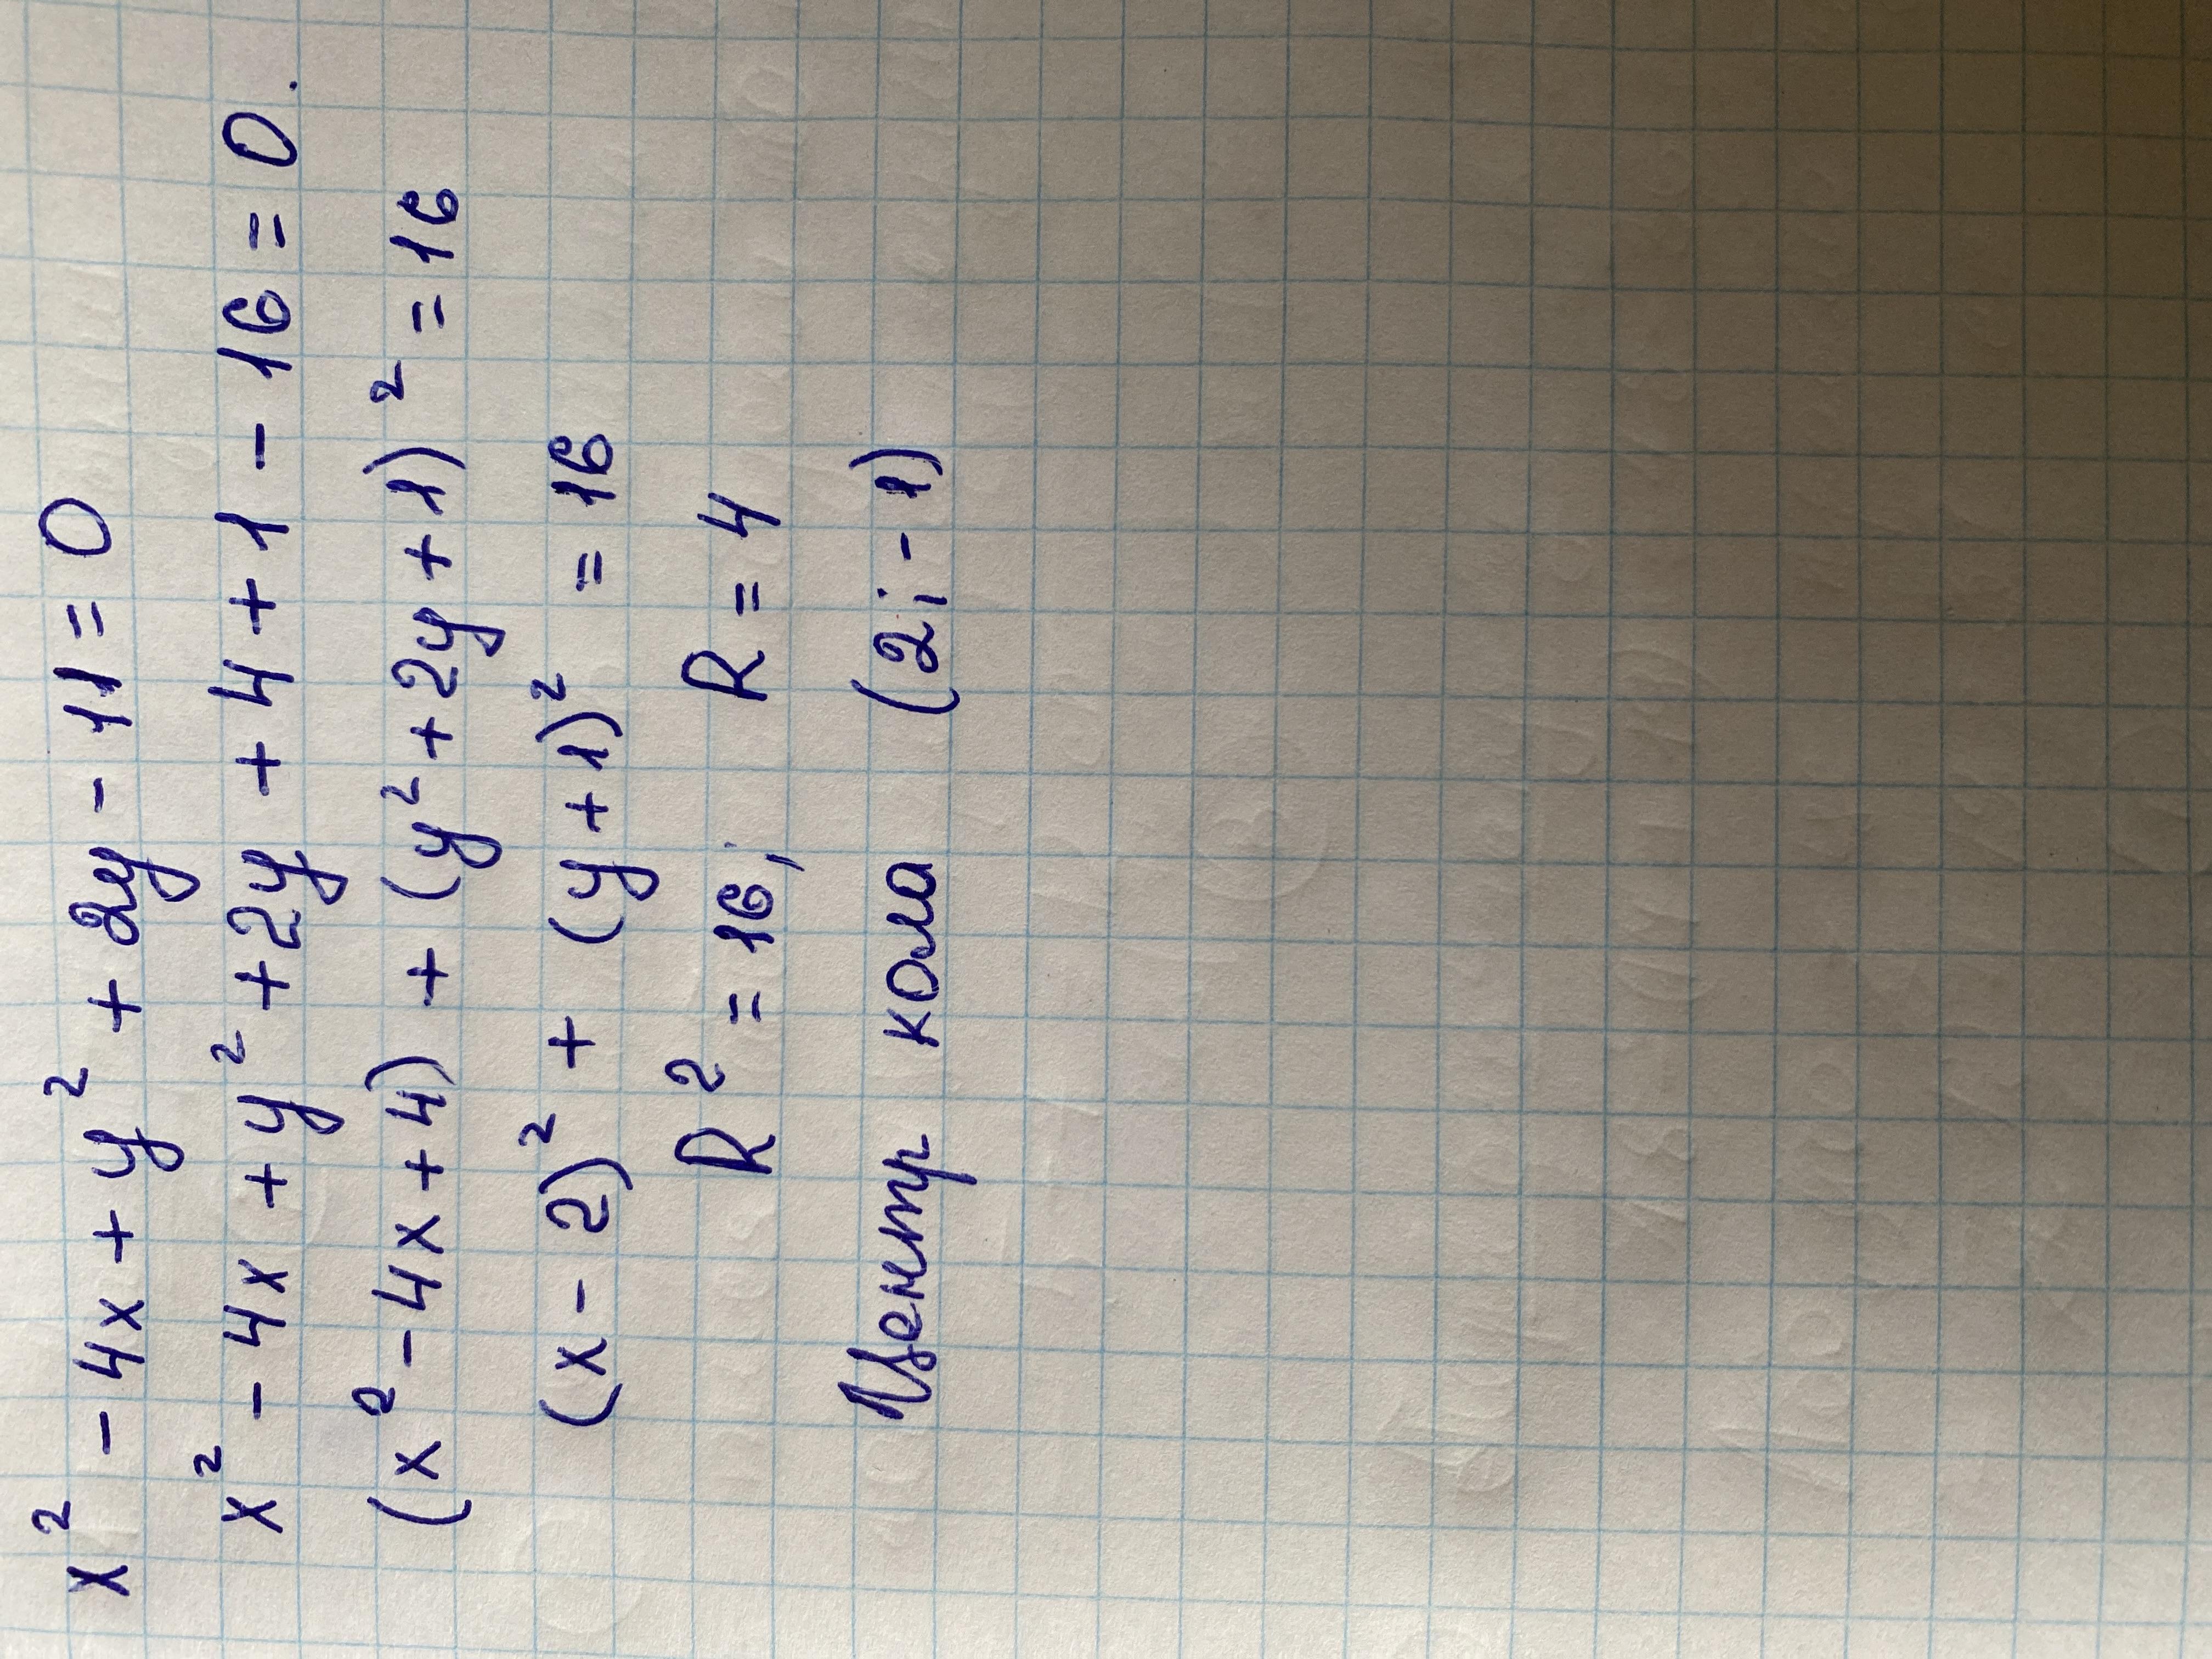 x² - 4x + y² + 2y - 11 = 0
x² - 4x + y² + 2y + 4 + 1 - 16 = 0.
(x² - 4x + 4) + (y² + 2y + 1)² = 16
(x - 2)² + (y + 1)² = 16
R² = 16; R = 4
Центр кола (2; -1)